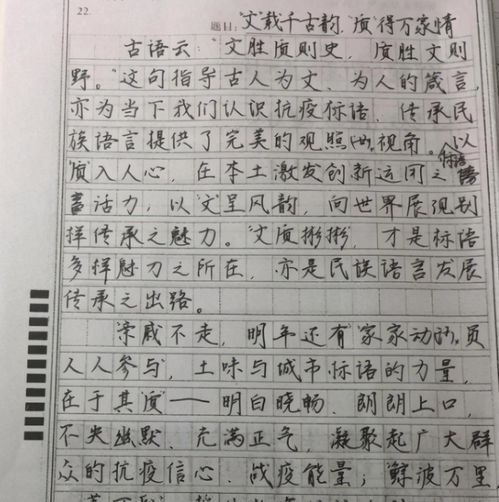 22.
题目：“文”载千古韵，“质”得万家情
古语云：“文胜质则史，质胜文则
野。”这句指导古人为文、为人的箴言，
亦为当下我们认识抗疫标语、传承民
族语言提供了完美的观照两视角。以
“质”入人心，在本土激发创新运用之标语
活力，以“文”呈风韵，向世界展现别
样传承之魅力。“文质彬彬”，才是标语
多样魅力之所在，亦是民族语言发展
传承之出路。
亲戚不走，明年还有“家家动员，
人人参与”，土味与城市标语的力量，
在于其“质”——明白晓畅、朗朗上口，
不失幽默、充满正气，凝聚起广大群
众的抗疫信心、战疫能量；“鲸波万里